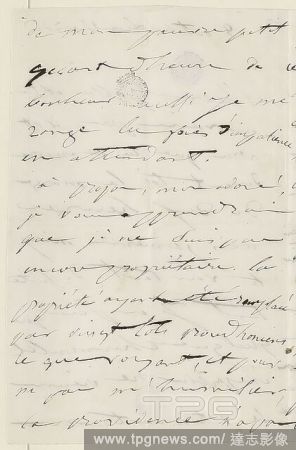 de mon pauvre petit
quart d'heure de
bonheur aussi je me
ronge le foie d'impatience
en attendant.
à papa, mon adoré,
je vous apprendrai
que je ne suis pas
encore propriétaire. la
propriété ayant été
par vingt lots
ce que voyant, et pour
ne pas m'humilier
la providence n'a pas
TPG
www.tpgnews.com/ 達志影像